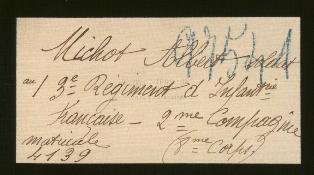 Michot Albert
au 13e Régiment d'Infantrie
Française - 2me Compagnie
matricule (8me Corps)
4139